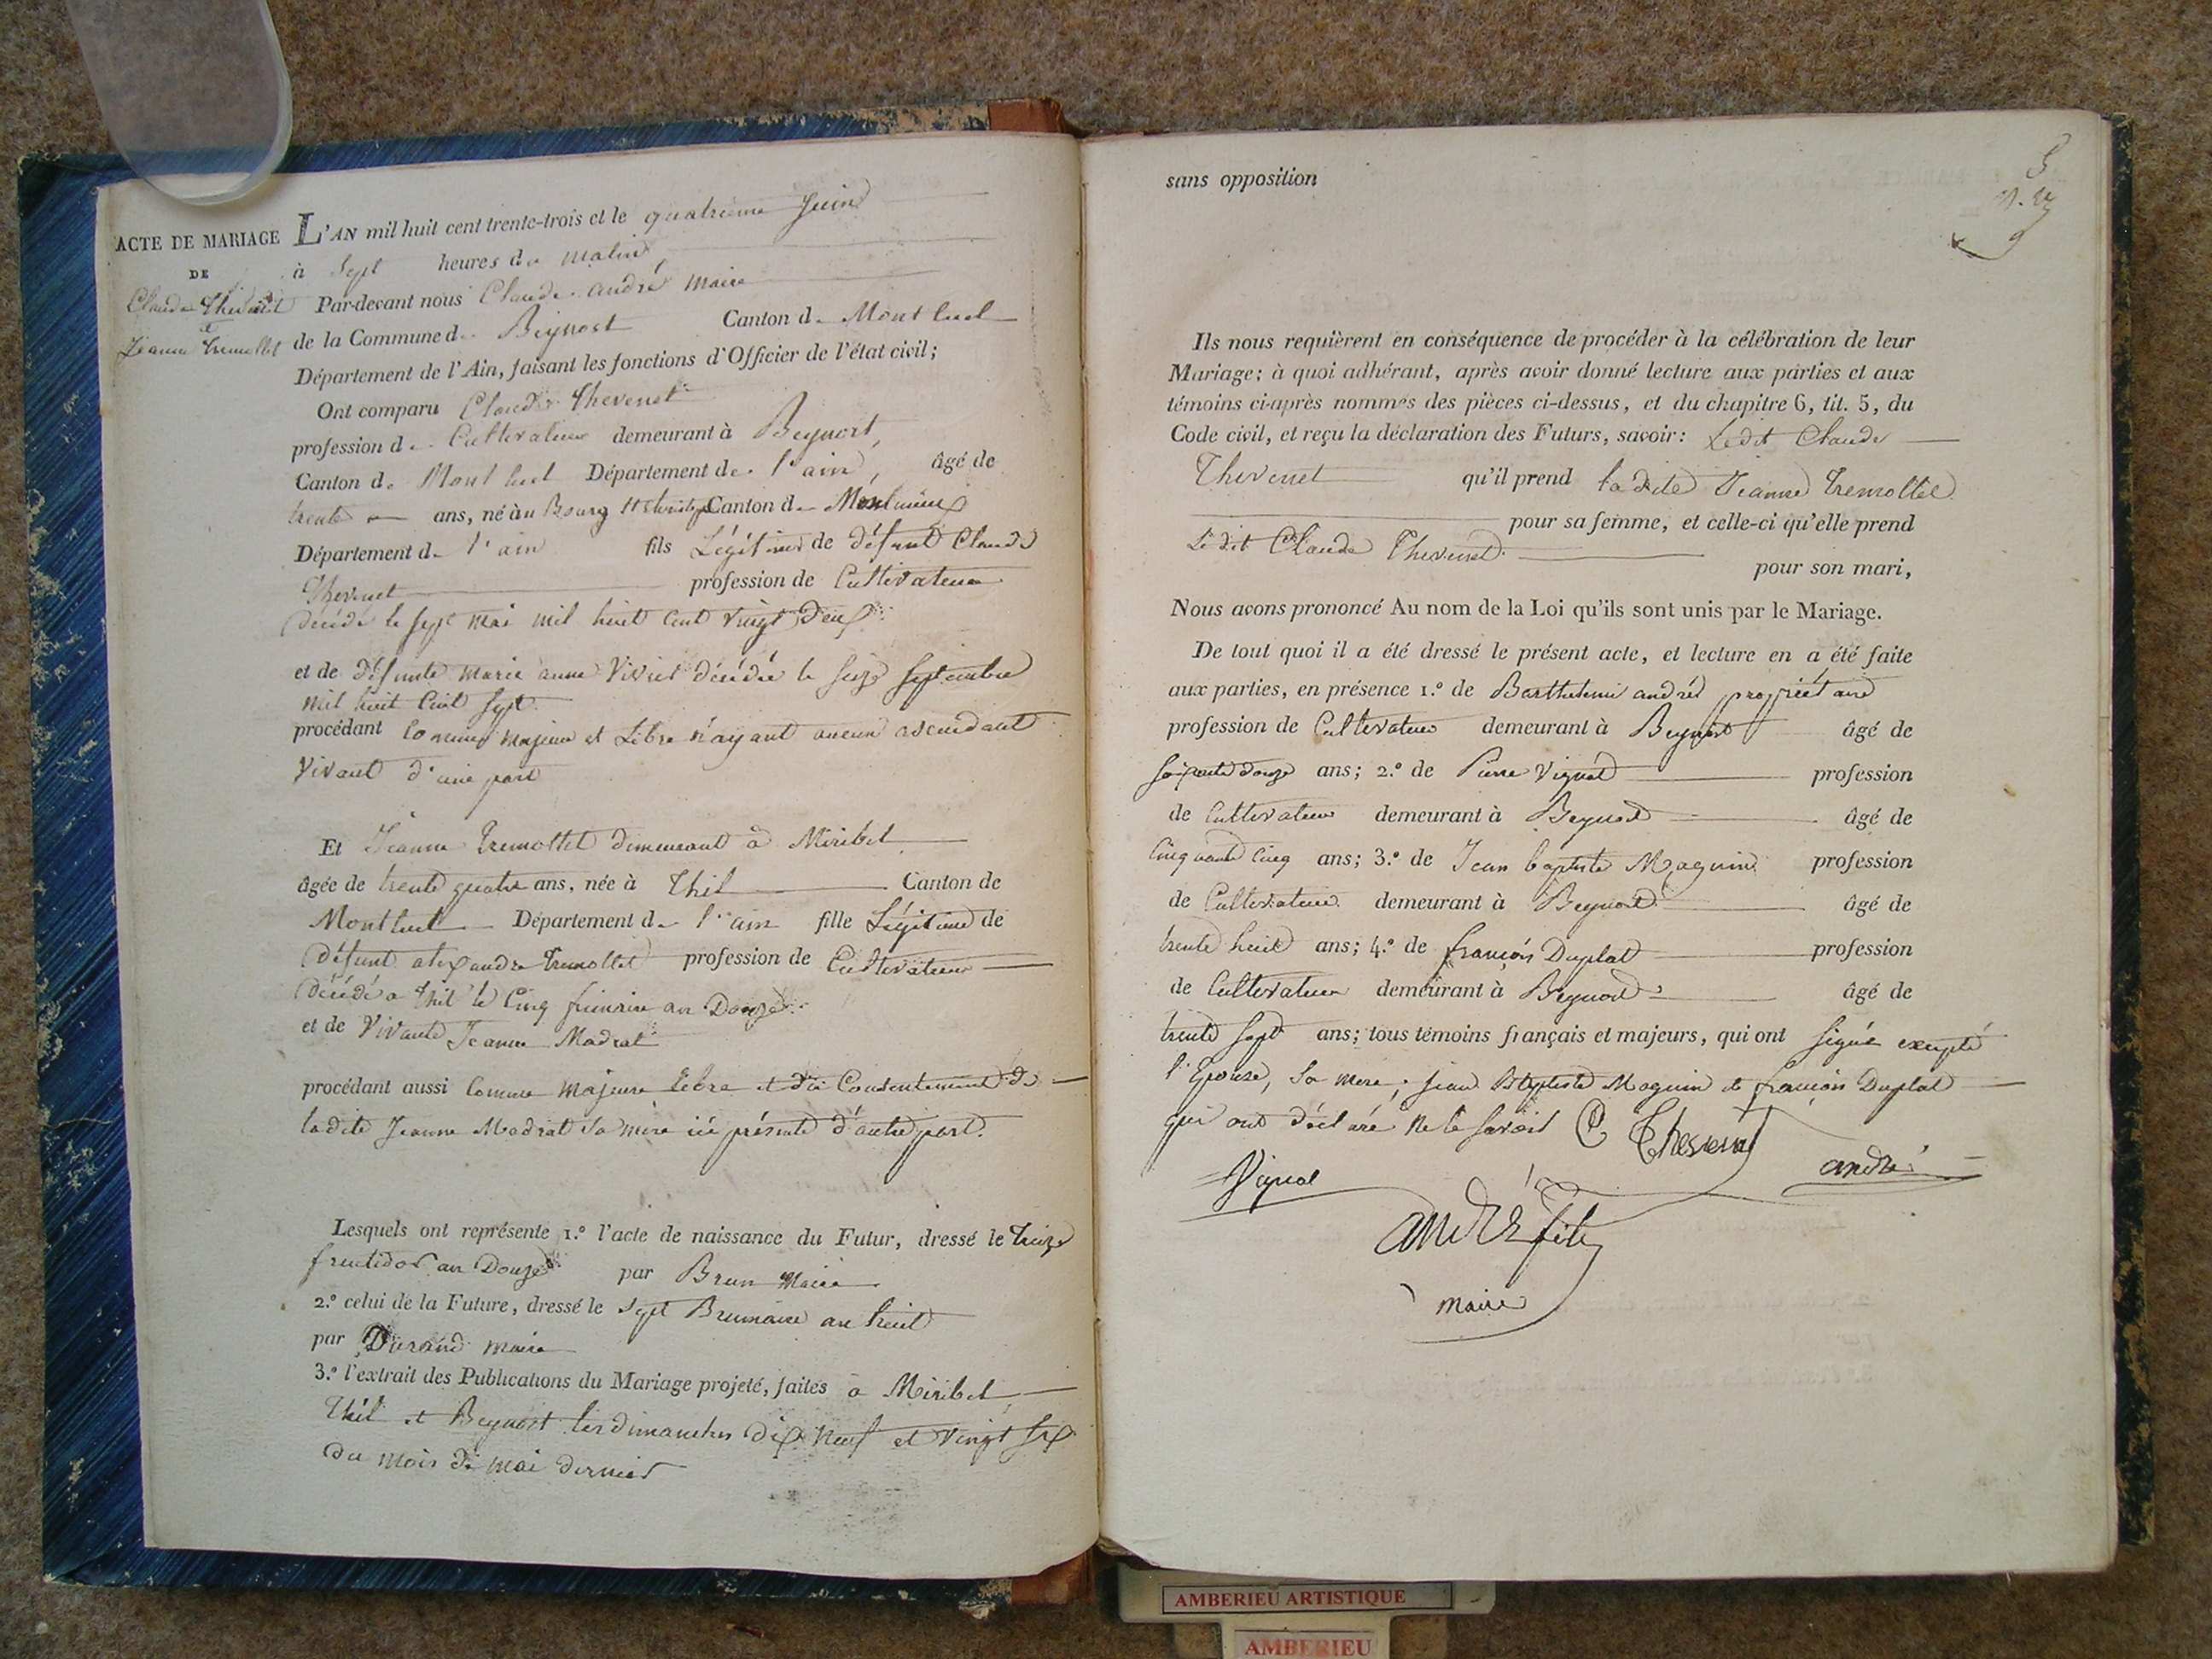 ACTE DE MARIAGE
DE
Claude Thevenet
et
Jeanne Tremollet
L'AN mil huit cent trente-trois et le quatrieme Juin
à Sept heures du matin
Par-devant nous Claude andré maire
de la Commune de Beynost Canton de Mont luel
Département de l'Ain, faisant les fonctions d'Officier de l'état civil;
Ont comparu Claude Thevenet
profession de Cultivateur demeurant à Beynost,
Canton de Mont luel Département de l'ain, âgé de
trente ans, né à u Bourg St Christophe Canton de Meximieux
Département de l'ain fils Légitime de défunt Claude
Thevenet profession de Cultivateur
décédé le sept mai mil huit cent vingt deux
et de défunte marie anne Vivier décédée le seize septembre
mil huit cent sept
procédant comme majeur et Libre n'ayant aucun ascendant
Vivant d'une part
Et Jeanne Tremollet demeurant à Miribel
âgée de trente quatre ans, née à Thil Canton de
Montluel Département de l'ain fille Légitime de
défunt alexandre Tremollet profession de Cultivateur
décédé a thil le Cinq frimaire an Douze
et de Vivante Jeanne Madrat
procédant aussi Comme majeure Libre et du Consentement de
la dite Jeanne Madrat sa mère ici présente d'autre part.
Lesquels ont représenté 1.º l'acte de naissance du Futur, dressé le treize
fructidor an Douze par Brun Maire
2.º celui de la Future, dressé le sept Brumaire an huit
par Durand maire
3.º l'extrait des Publications du Mariage projeté, faites à Miribel,
Thil et Beynost les dimanches dix neuf et vingt six
du mois de mai dernier
sans opposition
Ils nous requièrent en conséquence de procéder à la célébration de leur
Mariage; à quoi adhérant, après avoir donné lecture aux parties et aux
témoins ci-après nommés des pièces ci-dessus, et du chapitre 6, tit. 5, du
Code civil, et reçu la déclaration des Futurs, savoir: Ledit Claude
Thevenet qu'il prend la dite Jeanne Tremollet
pour sa femme, et celle-ci qu'elle prend
Le dit Claude Thevenet
pour son mari,
Nous avons prononcé Au nom de la Loi qu'ils sont unis par le Mariage.
De tout quoi il a été dressé le présent acte, et lecture en a été faite
aux parties, en présence 1.º de Barthelemi andré propriétaire
profession de Cultivateur demeurant à Beynost âgé de
soixante douze ans; 2.º de Pierre Vignat profession
de Cultivateur demeurant à Beynost âgé de
Cinquante Cinq ans; 3.º de Jean baptiste Maguin profession
de Cultivateur demeurant à Beynost âgé de
trente huit ans; 4.º de françois Duplat profession
de Cultivateur demeurant à Beynost âgé de
trente sept ans; tous témoins français et majeurs, qui ont signé excepté
l'Epouse, Sa mere, jean Baptiste Maguin et françois Duplat
qui ont déclaré ne le savoir C Thevenet
Vignal
andré
André fils
maire
AMBERIEU ARTISTIQUE
AMBERIEU